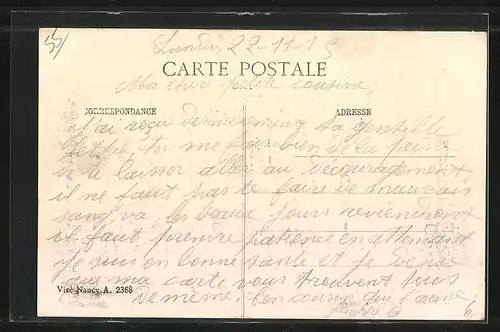 Lundi, 22-11-15
CARTE POSTALE
Ma cher petite cousine,
CORRESPONDANCE
ADRESSE
j'ai reçu dernierement ta gentille
lettre, tu me fais bien de la peine
de te laisser aller au decouragement
il ne faut pas te faire de mauvais
sang, va les beaux jours reviendront
il faut prendre patience en attendant
je suis en bonne santé et je
que ma carte vous trouvent tous
de meme. ton cousin qui t'aime
Visé Nancy A. 2368